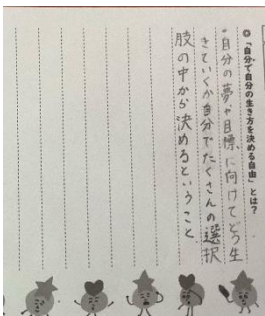 ◎「自分で自分の生き方を決める自由」とは？
・自分の夢や目標に向けてどう生
きていくか自分でたくさんの選択
肢の中から決めるということ